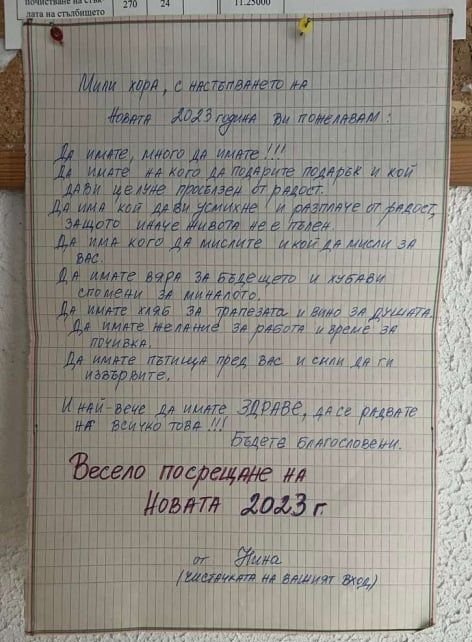 270 24 11.25000
лата на стълбището
Мили хора, с настъпването на
Новата 2023 година Ви пожелавам:
Да имате, много да имате!!!
Да имате на кого да подарите подарък и кой
да Ви целуне просълзен от радост.
Да има кой да Ви усмихне и разплаче от радост,
защото иначе живота не е пълен.
Да има кого да мислите и кой да мисли за
вас.
Да имате вяра за бъдещето и хубави
спомени за миналото.
Да имате хляб за трапезата и вино за душата.
Да имате желание за работа и време за
почивка.
Да имате пътища пред вас и сили да ги
извървите.
И най-вече да имате ЗДРАВЕ, да се радвате
на всичко това!!!
Бъдете благословени.
Весело посрещане на
Новата 2023 г.
от Нина
(чистачката на вашият вход)